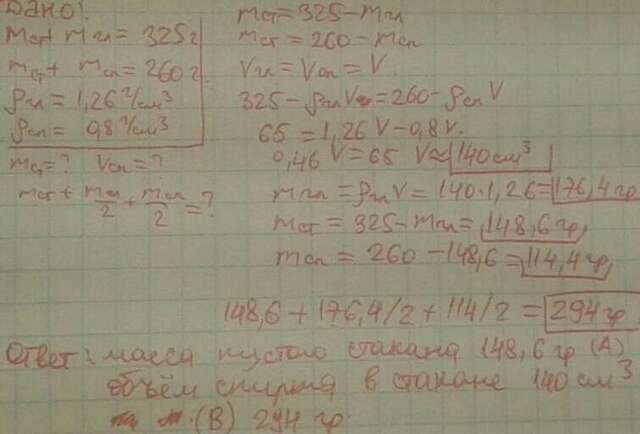 Дано:
mст + mгл = 325г
mст + mсп = 260г.
ρгл = 1,26 г/см³
ρсп = 0,8 г/см³
mст = ? Vсп = ?
mст + mгл/2 + mсп/2 = ?
mст = 325 - mгл
mст = 260 - mсп
Vгл = Vсп = V.
325 - ρглV = 260 - ρспV
65 = 1,26 V - 0,8 V.
0,46 V = 65 V ≈ 140 см³
mгл = ρглV = 140 · 1,26 = 176,4 гр
mст = 325 - mгл = 148,6 гр,
mсп = 260 - 148,6 = 114,4 гр,
148,6 + 176,4/2 + 114/2 = 294 гр
Ответ: масса пустого стакана 148,6 гр (А)
объём спирта в стакане 140 см³
(В) 294 гр.